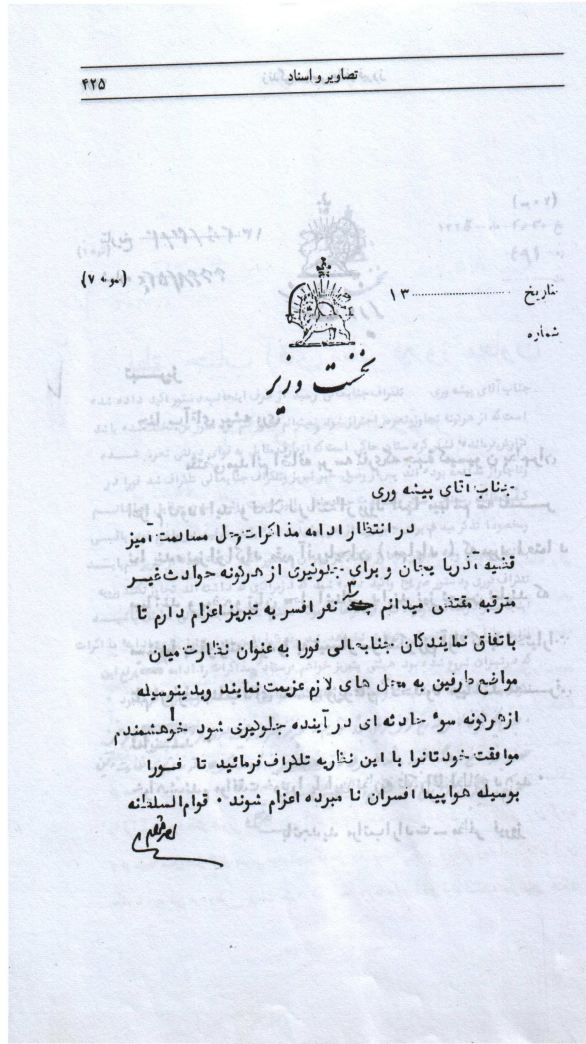 تصاویر و اسناد
۴۲۵
(نمونه ۷)
تاریخ ........................ ۱۳
شماره
نخست وزیر
جناب آقای پیشه وری
در انتظار ادامه مذاکرات وحل مسالمت آمیز
قضیه آذربایجان و برای جلوگیری از هرگونه حوادث غیر
مترقبه مقتضی میدانم ۳ نفر افسر به تبریز اعزام دارم تا
باتفاق نمایندگان جنابعالی فورا به عنوان نظارت میان
مواضع طرفین به محل های لازم عزیمت نمایند وبدینوسیله
ازهرگونه سوء حادثه ای درآینده جلوگیری شود خواهشمندم
موافقت خودتانرا با این نظریه تلگراف فرمائید تا فورا
بوسیله هواپیما افسران نامبرده اعزام شوند . قوام السلطنه